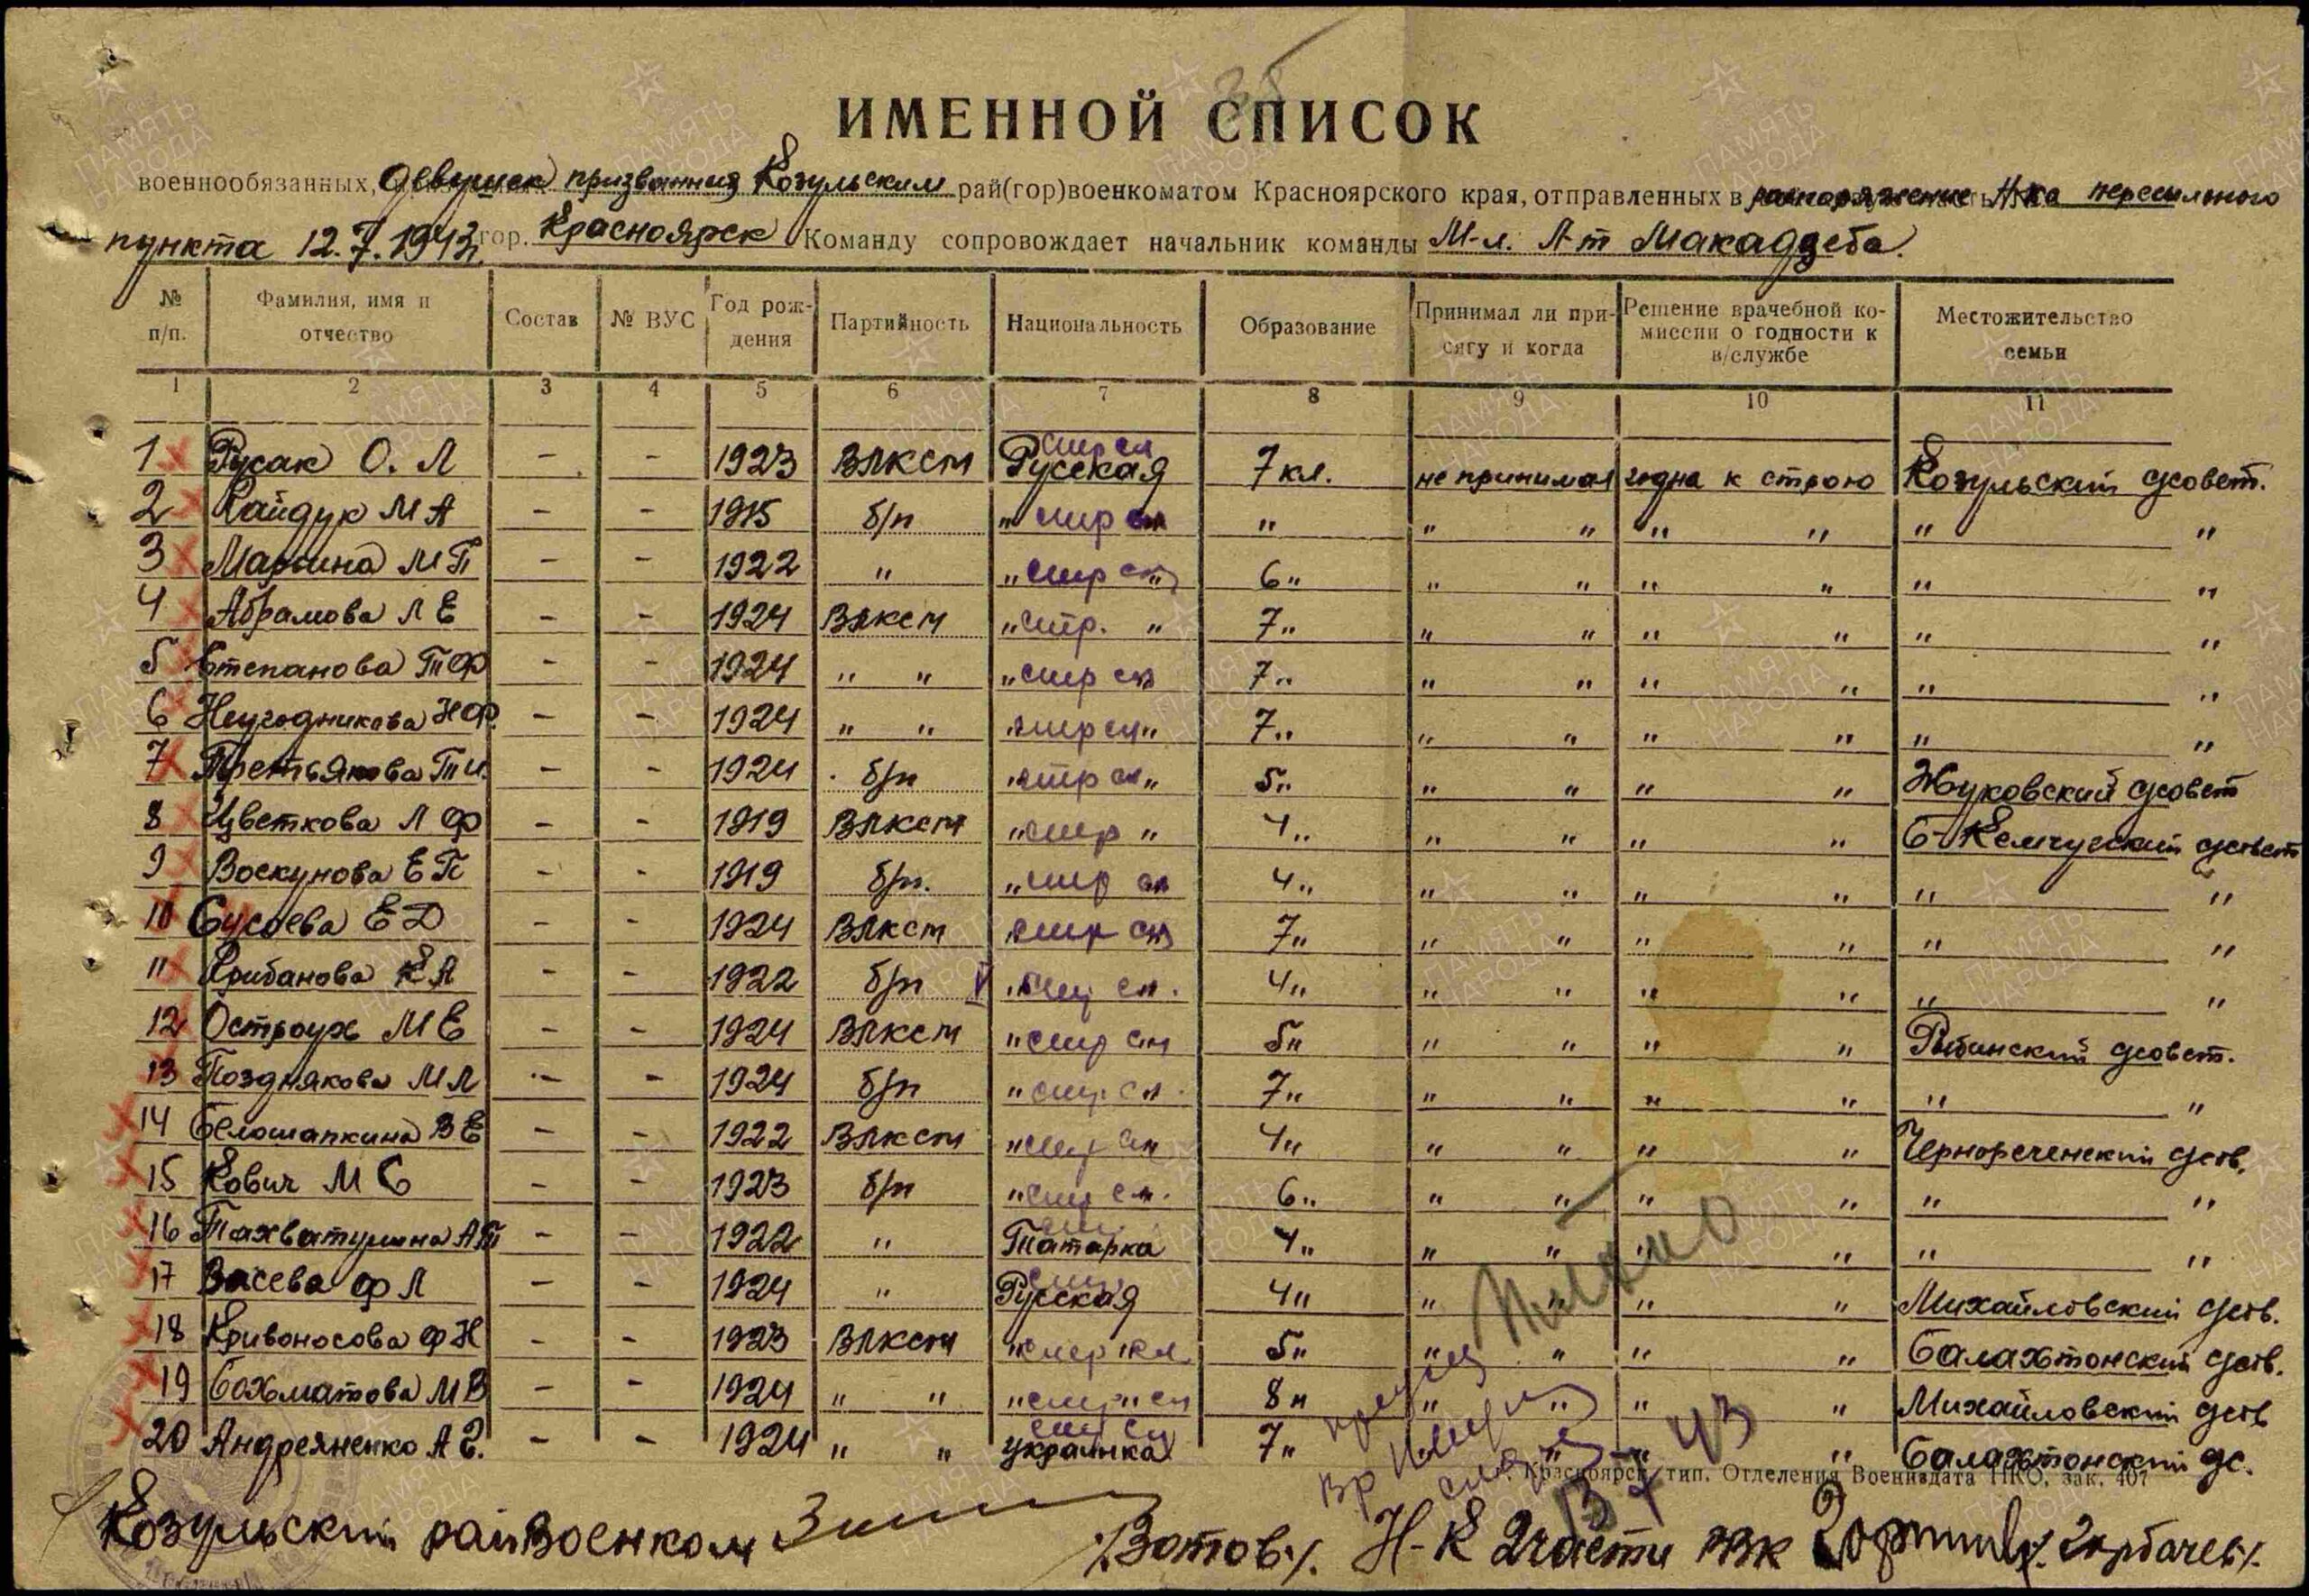 ИМЕННОЙ СПИСОК
военнообязанных, девушек призванных Козульским рай(гор)военкоматом Красноярского края, отправленных в распоряжение Н-ка пересыльного
пункта 12.7.1943 гор. Красноярск Команду сопровождает начальник команды М-л. Л-т Макадзеба.
№ п/п. Фамилия, имя и отчество Состав № ВУС Год рождения Партийность Национальность Образование Принимал ли присягу и когда Решение врачебной комиссии о годности к в/службе Местожительство семьи
1 2 3 4 5 6 7 8 9 10 11
1 Русак О. Л - - 1923 ВЛКСМ Русская 7 кл. не принимал годна к строю Козульский с/совет.
2 Гайдук М А - - 1915 б/п " " " " " " " "
3 Марьина М П - - 1922 " " " 6 " " " " " " "
4 Абрамова Л Е - - 1924 ВЛКСМ " " 7 " " " " " " "
5 Степанова Т Ф - - 1924 " " " 7 " " " " " " "
6 Неугодникова Н Ф. - - 1924 " " " " 7 " " " " " " "
7 Третьякова Т И. - - 1924 б/п " " 5 " " " " " Жуковский с/совет
8 Цветкова Л Ф - - 1919 ВЛКСМ " " 4 " " " " " Б-Кемчугский с/совет
9 Воскунова Е П - - 1919 б/п. " 4 " " " " " " "
10 Сусоева Е Д - - 1924 ВЛКСМ " 7 " " " " " " "
11 Грибанова К А - - 1922 б/п " 4 " " " " " " "
12 Остроух М Е - - 1924 ВЛКСМ " 5 " " " " " Рыбинский с/совет.
13 Позднякова М Л - - 1924 б/п " 7 " " " " " " "
14 Белошапкина В Е - - 1922 ВЛКСМ " 4 " " " " " Чернореченский с/сов.
15 Кович М С - - 1923 б/п " 6 " " " " " " "
16 Тахватулина А Т - - 1922 " Татарка 4 " " " " " " "
17 Васева Ф Л - - 1924 " Русская 4 " " " " " Михайловский с/сов.
18 Кривоносова Ф Н - - 1923 ВЛКСМ " 5 " " " " " Балахтонский с/сов.
19 Бахматова М В - - 1924 " " " 8 " " " " " Михайловский с/сов
20 Андреяненко А Е. - - 1924 " " украинка 7 " " " " Балахтонский с/с.
г. Красноярск, тип. Отделения Воениздата НКО, зак. 407
Козульский райвоенком /Зотов/. Н-к 2 части РВК /Горбачев/.